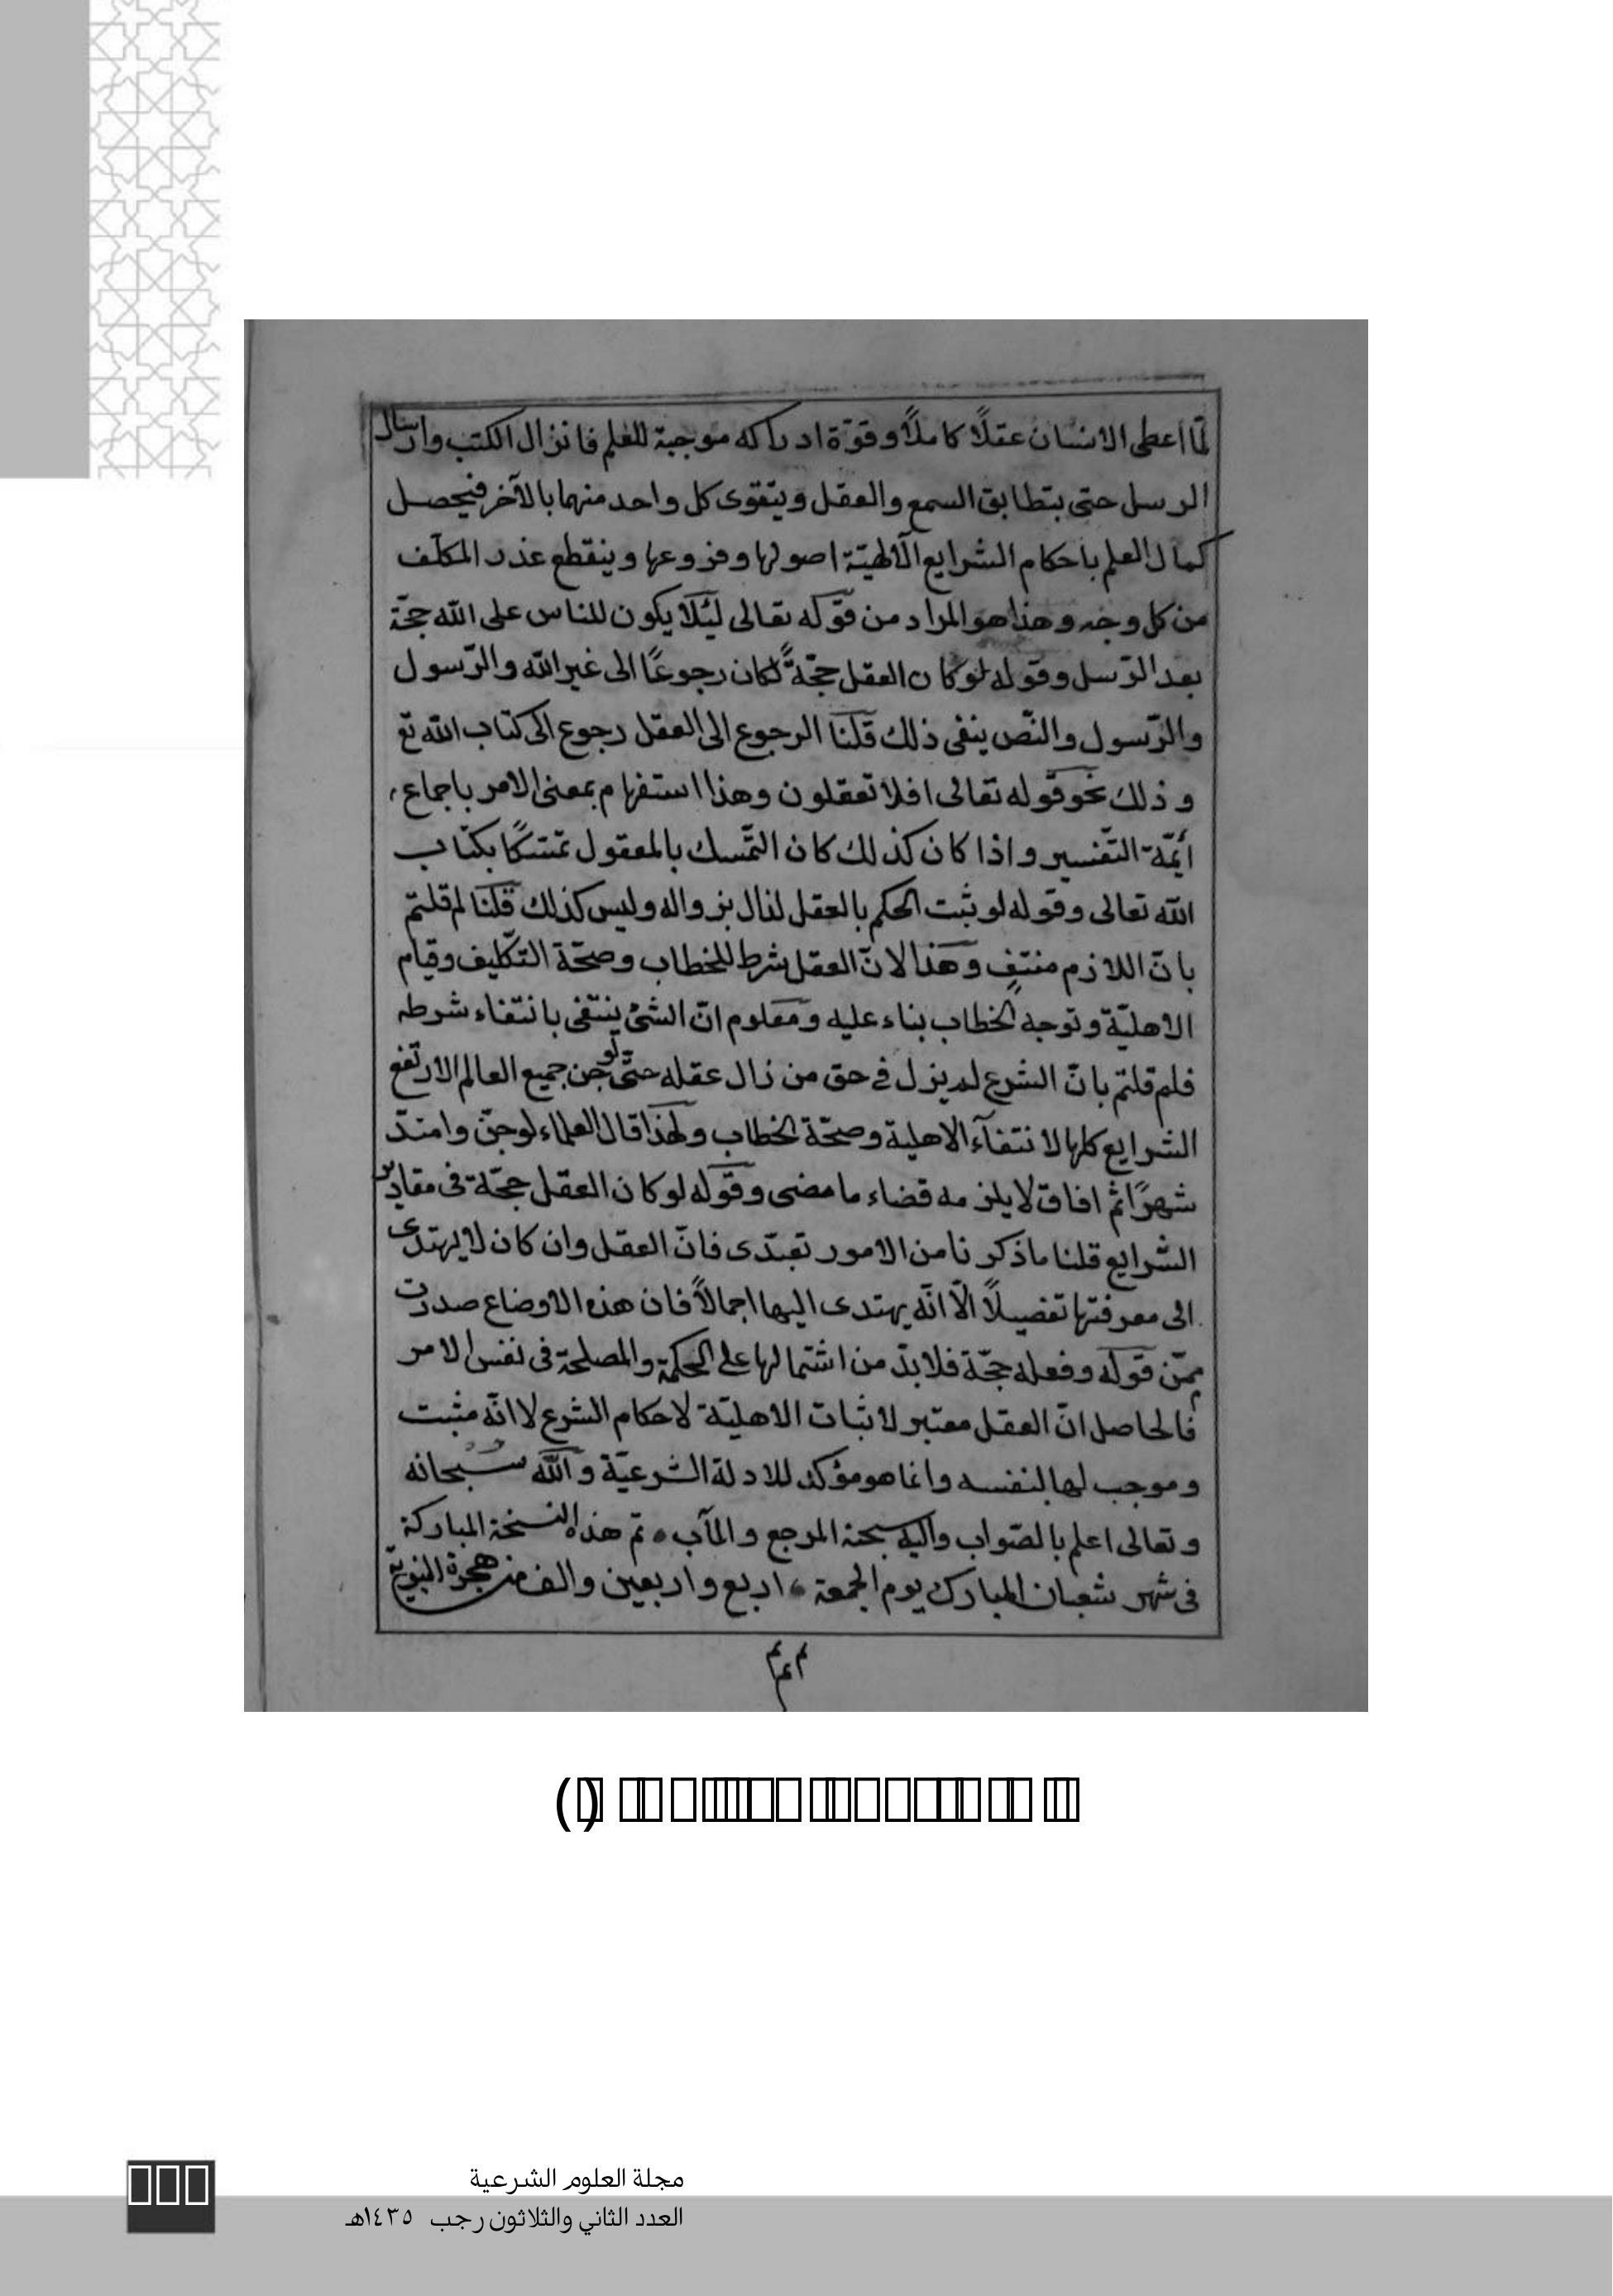 لمّا اعطى الانسان عقلًا كاملًا وقوّة ادراكه موجبة للعلم فانزال الكتب وارسال
الرسل حتى يتطابق السمع والعقل ويتقوى كل واحد منهما بالآخر فيحصل
كمال العلم باحكام الشرايع الآلهيّة اصولها وفروعها وينقطع عذر المكلّف
من كل وجه وهذا هو المراد من قوله تعالى ليئلا يكون للناس على الله حجّة
بعد الرّسل وقوله لو كان العقل حجّةً لكان رجوعًا الى غير الله والرّسول
والرّسول والنّص ينفى ذلك قلنا الرجوع الى العقل رجوع الى كتاب الله تع
وذلك نحو قوله تعالى افلا تعقلون وهذا استفهام بمعنى الامر باجماع
أيمّة التّفسير واذا كان كذلك كان التمّسك بالمعقول تمسّكًا بكتاب
الله تعالى وقوله لو ثبت الحكم بالعقل لزال بزواله وليس كذلك قلنا لم قلتم
بانّ اللازم منتفٍ وهذا لانّ العقل شرط للخطاب وصحّة التكليف وقيام
الاهليّة وتوجه الخطاب بناء عليه ومعلوم انّ الشئ ينتفى بانتفاء شرطه
فلم قلتم بانّ الشرع لم يزل فى حق من زال عقله حتّى لو جن جميع العالم الارتفع
الشرايع كلها لانتفآء الاهلية وصحّة الخطاب ولهذا قال العلماء لو جنّ وامتدّ
شهرًا ثم افاق لا يلزمه قضاء ما مضى وقوله لو كان العقل حجّة فى مقادير
الشرايع قلنا ما ذكرنا من الامور تعبدّى فانّ العقل وان كان لا يهتدى
الى معرفتها تفصيلًا الّا انّه يهتدى اليها اجمالًا فان هذه الاوضاع صدرت
ممّن قوله وفعله حجّة فلا بدّ من اشتمالها على الحكمة والمصلحة فى نفس الامر
فالحاصل انّ العقل معتبر لاثبات الاهليّة لاحكام الشرع لا انّه مثبت
وموجب لها لنفسه وانما هو مؤكد للادلة الشرعيّة والله سبحانه
وتعالى اعلم بالصّواب واليه المرجع والمآب تم هذه النسخة المباركة
فى شهر شعبان المبارك يوم الجمعة اربع واربعين والف من هجرة النبويّة
مجلة العلوم الشرعية
العدد الثاني والثلاثون رجب ١٤٣٥هـ